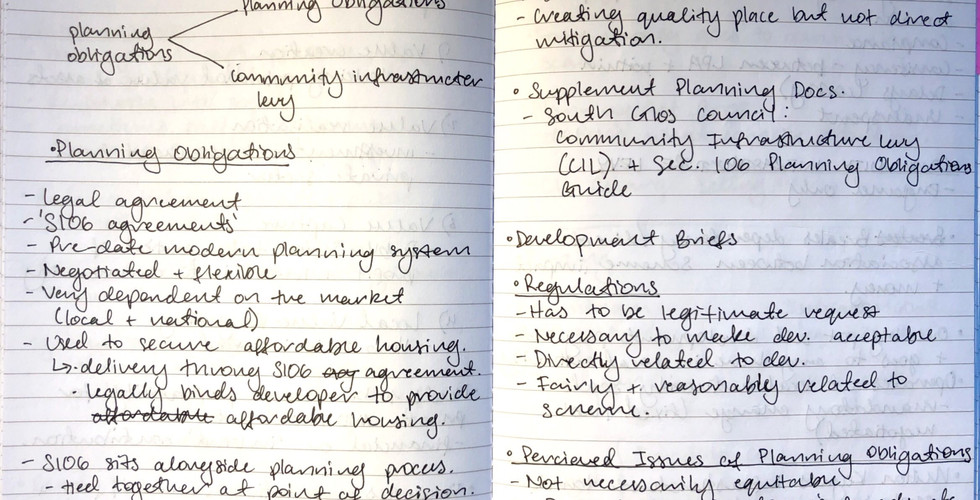 planning obligations
planning
obligations
community infrastructer
levy
• Planning Obligations
- legal agreement
- 'S106 agreements'
- Pre-date modern planning system
- Negotiated + flexible
- Very dependent on the market
(local + national)
- Used to secure affordable housing.
↳ delivery throug S106 agreement.
• legally binds developer to provide
affordable affordable housing.
- S106 sits alongside planning proces.
- tied together at point of decision.
- Creating quality place but not direct
mitigation.
• Supplement Planning Docs.
- South Glos Council:
Community Infrastructure levy
(CIL) + Sec. 106 Planning Obligations
Guide
• Development Briefs
• Regulations
- Has to be legitimate request
- Necessary to make dev. acceptable
- Directly related to dev.
- Fairly + reasonably related to
scheme.
• Percieved Issues of Planning Obligations
- Not necessarily equitable